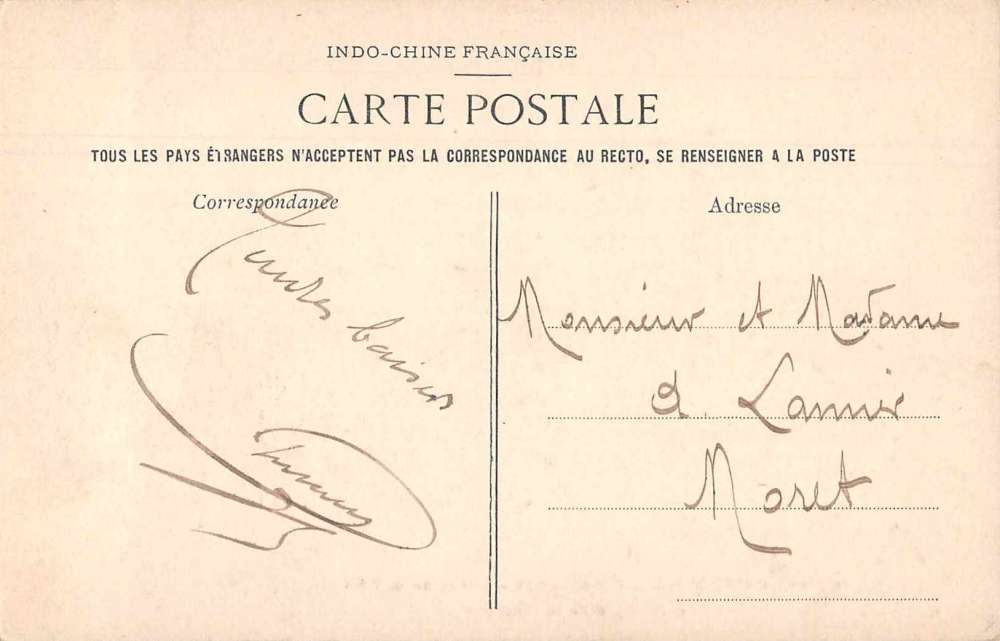 INDO-CHINE FRANÇAISE
CARTE POSTALE
TOUS LES PAYS ÉTRANGERS N'ACCEPTENT PAS LA CORRESPONDANCE AU RECTO, SE RENSEIGNER A LA POSTE
Correspondance
Tendres baisers
Adresse
Monsieur et Madame
A. Lannier
Moret